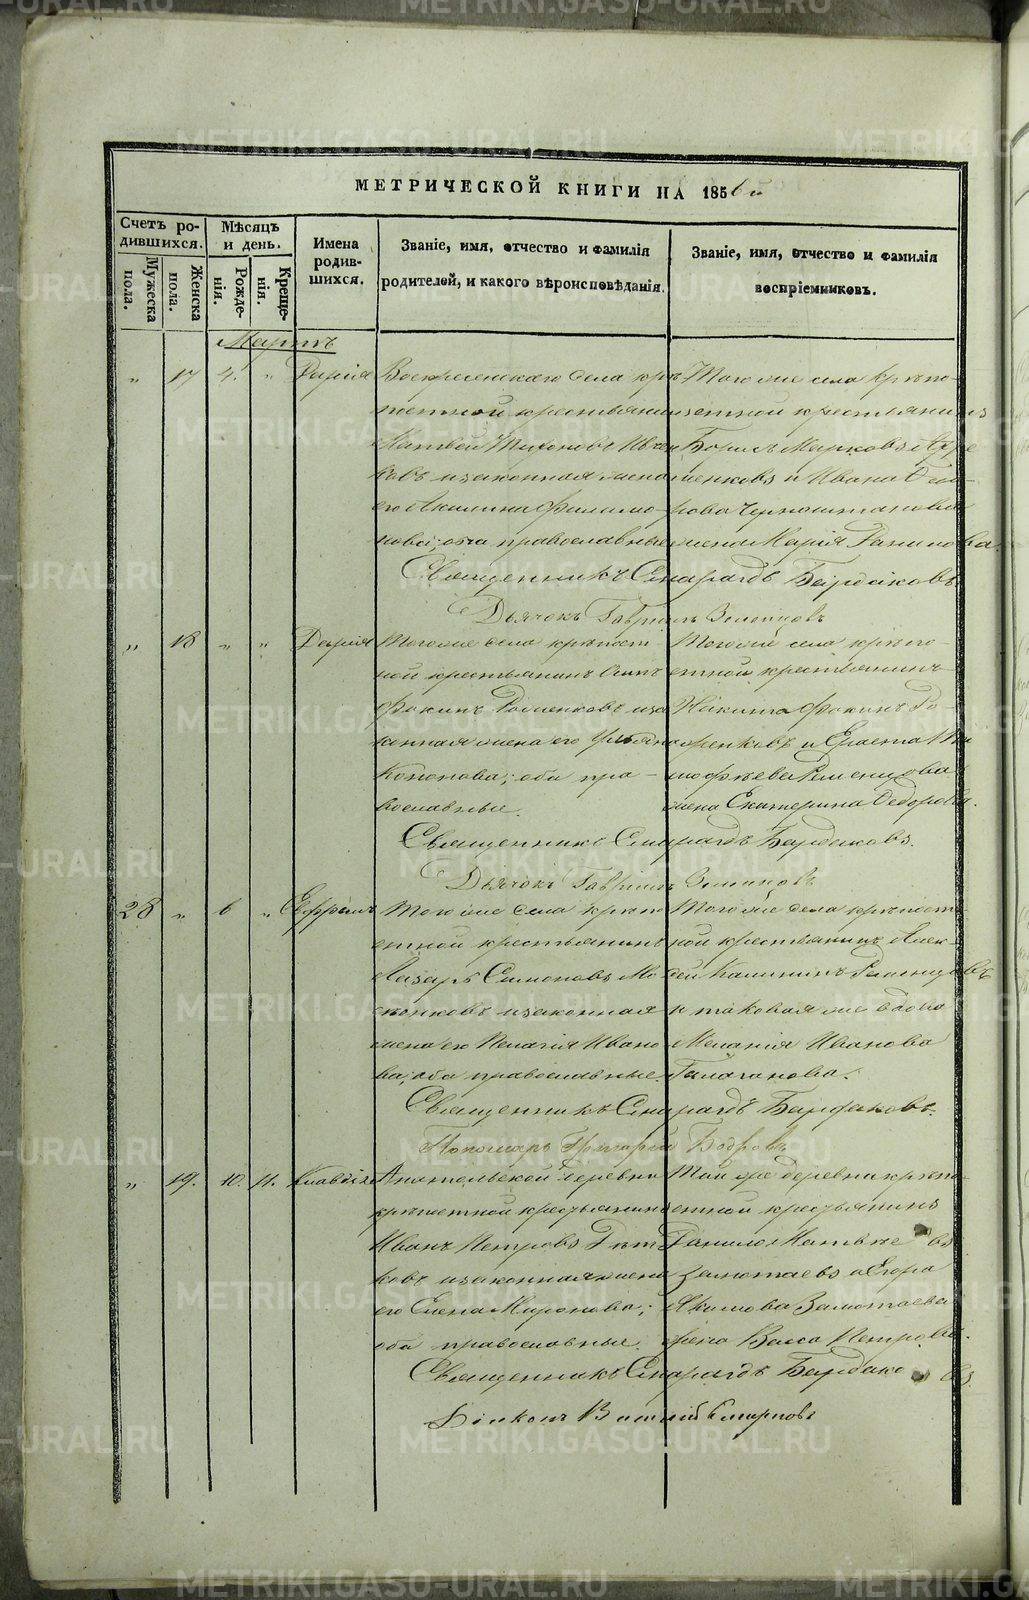 МЕТРИЧЕСКОЙ КНИГИ НА 1856 й
Счетъ ро-
дившихся.
Мужеска
пола.
Женска
пола.
Мѣсяцъ
и день.
Рожде-
нія.
Креще-
нія.
Имена
родив-
шихся.
Званіе, имя, отчество и фамилія
родителей, и какого вѣроисповѣданія.
Званіе, имя, отчество и фамилія
воспріемниковъ.
Мартъ
" 17 4. " Дарія
Воскресенскаго села крѣ-
постной крестьянинъ
Матвей Тихоновъ
ковъ и законная жена
его Акилина Филимо-
нова; оба православные
Того же села крѣпо-
стной крестьянинъ
Борисъ Марковъ
менковъ и Ивана Ѳедо-
рова Черноштанова
жена Марія Данилова.
Священникъ Смарагдъ Бардаковъ
Дьячокъ Гавріилъ
" 18 " " Дарія
Того же села крѣпост-
ной крестьянинъ Осипъ
Фокинъ и за-
конная жена его Ульяна
Кононова; оба пра-
вославные.
Того же села крѣпо-
стной крестьянинъ
Никита Фокинъ
и Ераста Ти-
мофѣева Ременцова
жена Екатерина Ѳедорова.
Священникъ Смарагдъ Бардаковъ.
Дьячокъ Гавріилъ
28 " 6 " Ефремъ
Того же села крѣпо-
стной крестьянинъ
Лазарь Семеновъ
и законная
жена его Пелагія Ивано-
ва; оба православные.
Того же села крѣпост-
ной крестьянинъ Алек-
сей Калининъ Ременцовъ
и таковая же вдова
Меланія Иванова
Галаганова.
Священникъ Смарагдъ Бардаковъ.
Пономарь Григорій Бобровъ
" 19. 10. 11. Клавдія
Анатольской деревни
крѣпостной крестьянинъ
Иванъ Петровъ
ковъ и законная жена
его Елена Миронова;
оба православные.
Той же деревни крѣпо-
стной крестьянинъ
Данило Матвѣевъ
Замотаевъ и Егора
Якимова Замотаева
жена Васса Петрова.
Священникъ Смарагдъ Бардаковъ.
Діаконъ Василій Смирновъ
METRIKI.GASO-URAL.RU